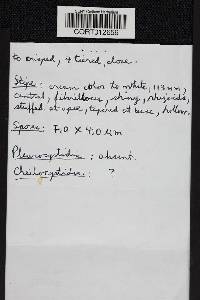 CORTJ12656
to crisped, 4 tiered, close.
Stipe: cream color to white, 1-3 mm,
central, fibrillose, shiny, rhizoids,
stuffed at apex, tapered at base, hollow.
Spores: 7.0 X 4.0 µm
Pleurocystidia: absent.
Cheilocystidia: ?